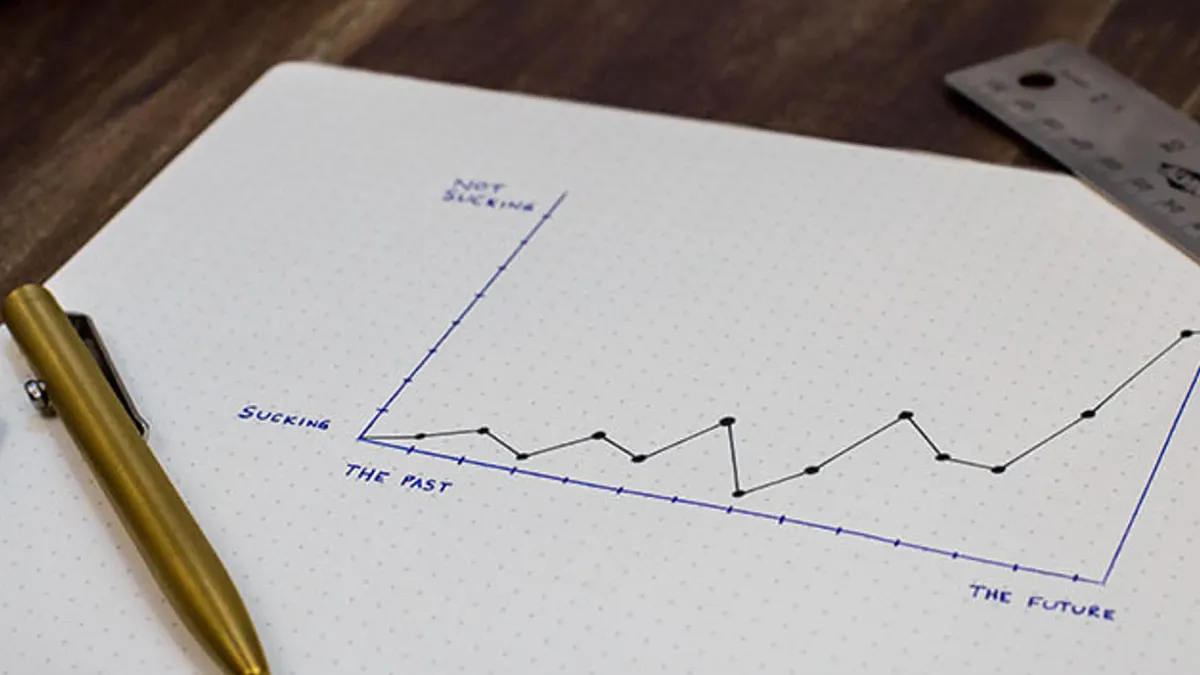 NOT
SUCKING
SUCKING
THE PAST
THE FUTURE